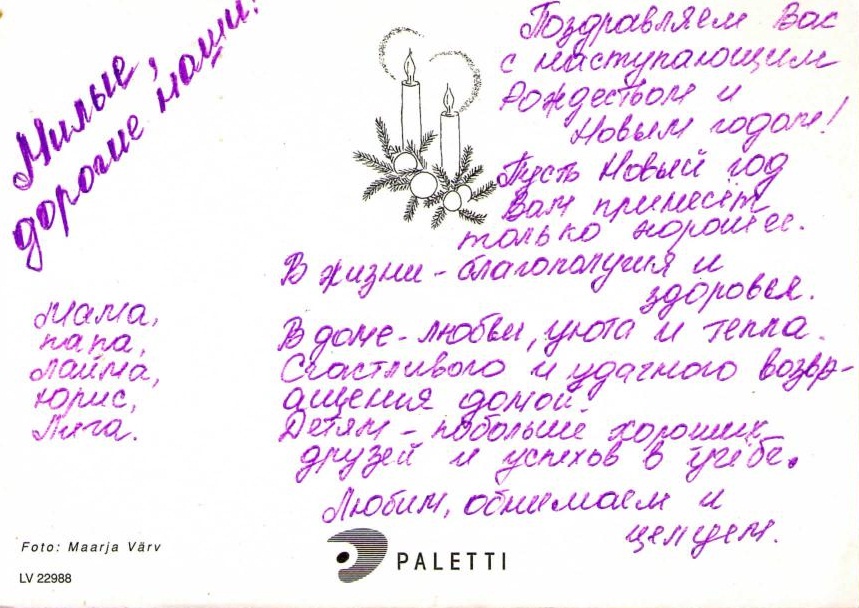 Милые,
дорогие наши!
Поздравляем Вас
с наступающим
Рождеством и
Новым годом!
Пусть Новый год
Вам принесёт
только хорошее.
В жизни - благополучия и
здоровья.
В доме - любви, уюта и тепла.
Счастливого и удачного возвр-
ащения домой.
Детям - побольше хороших
друзей и успехов в учёбе.
Любим, обнимаем и
целуем.
Мама,
папа,
Лайма,
Юрис,
Лига.
Foto: Maarja Värv
LV 22988
PALETTI